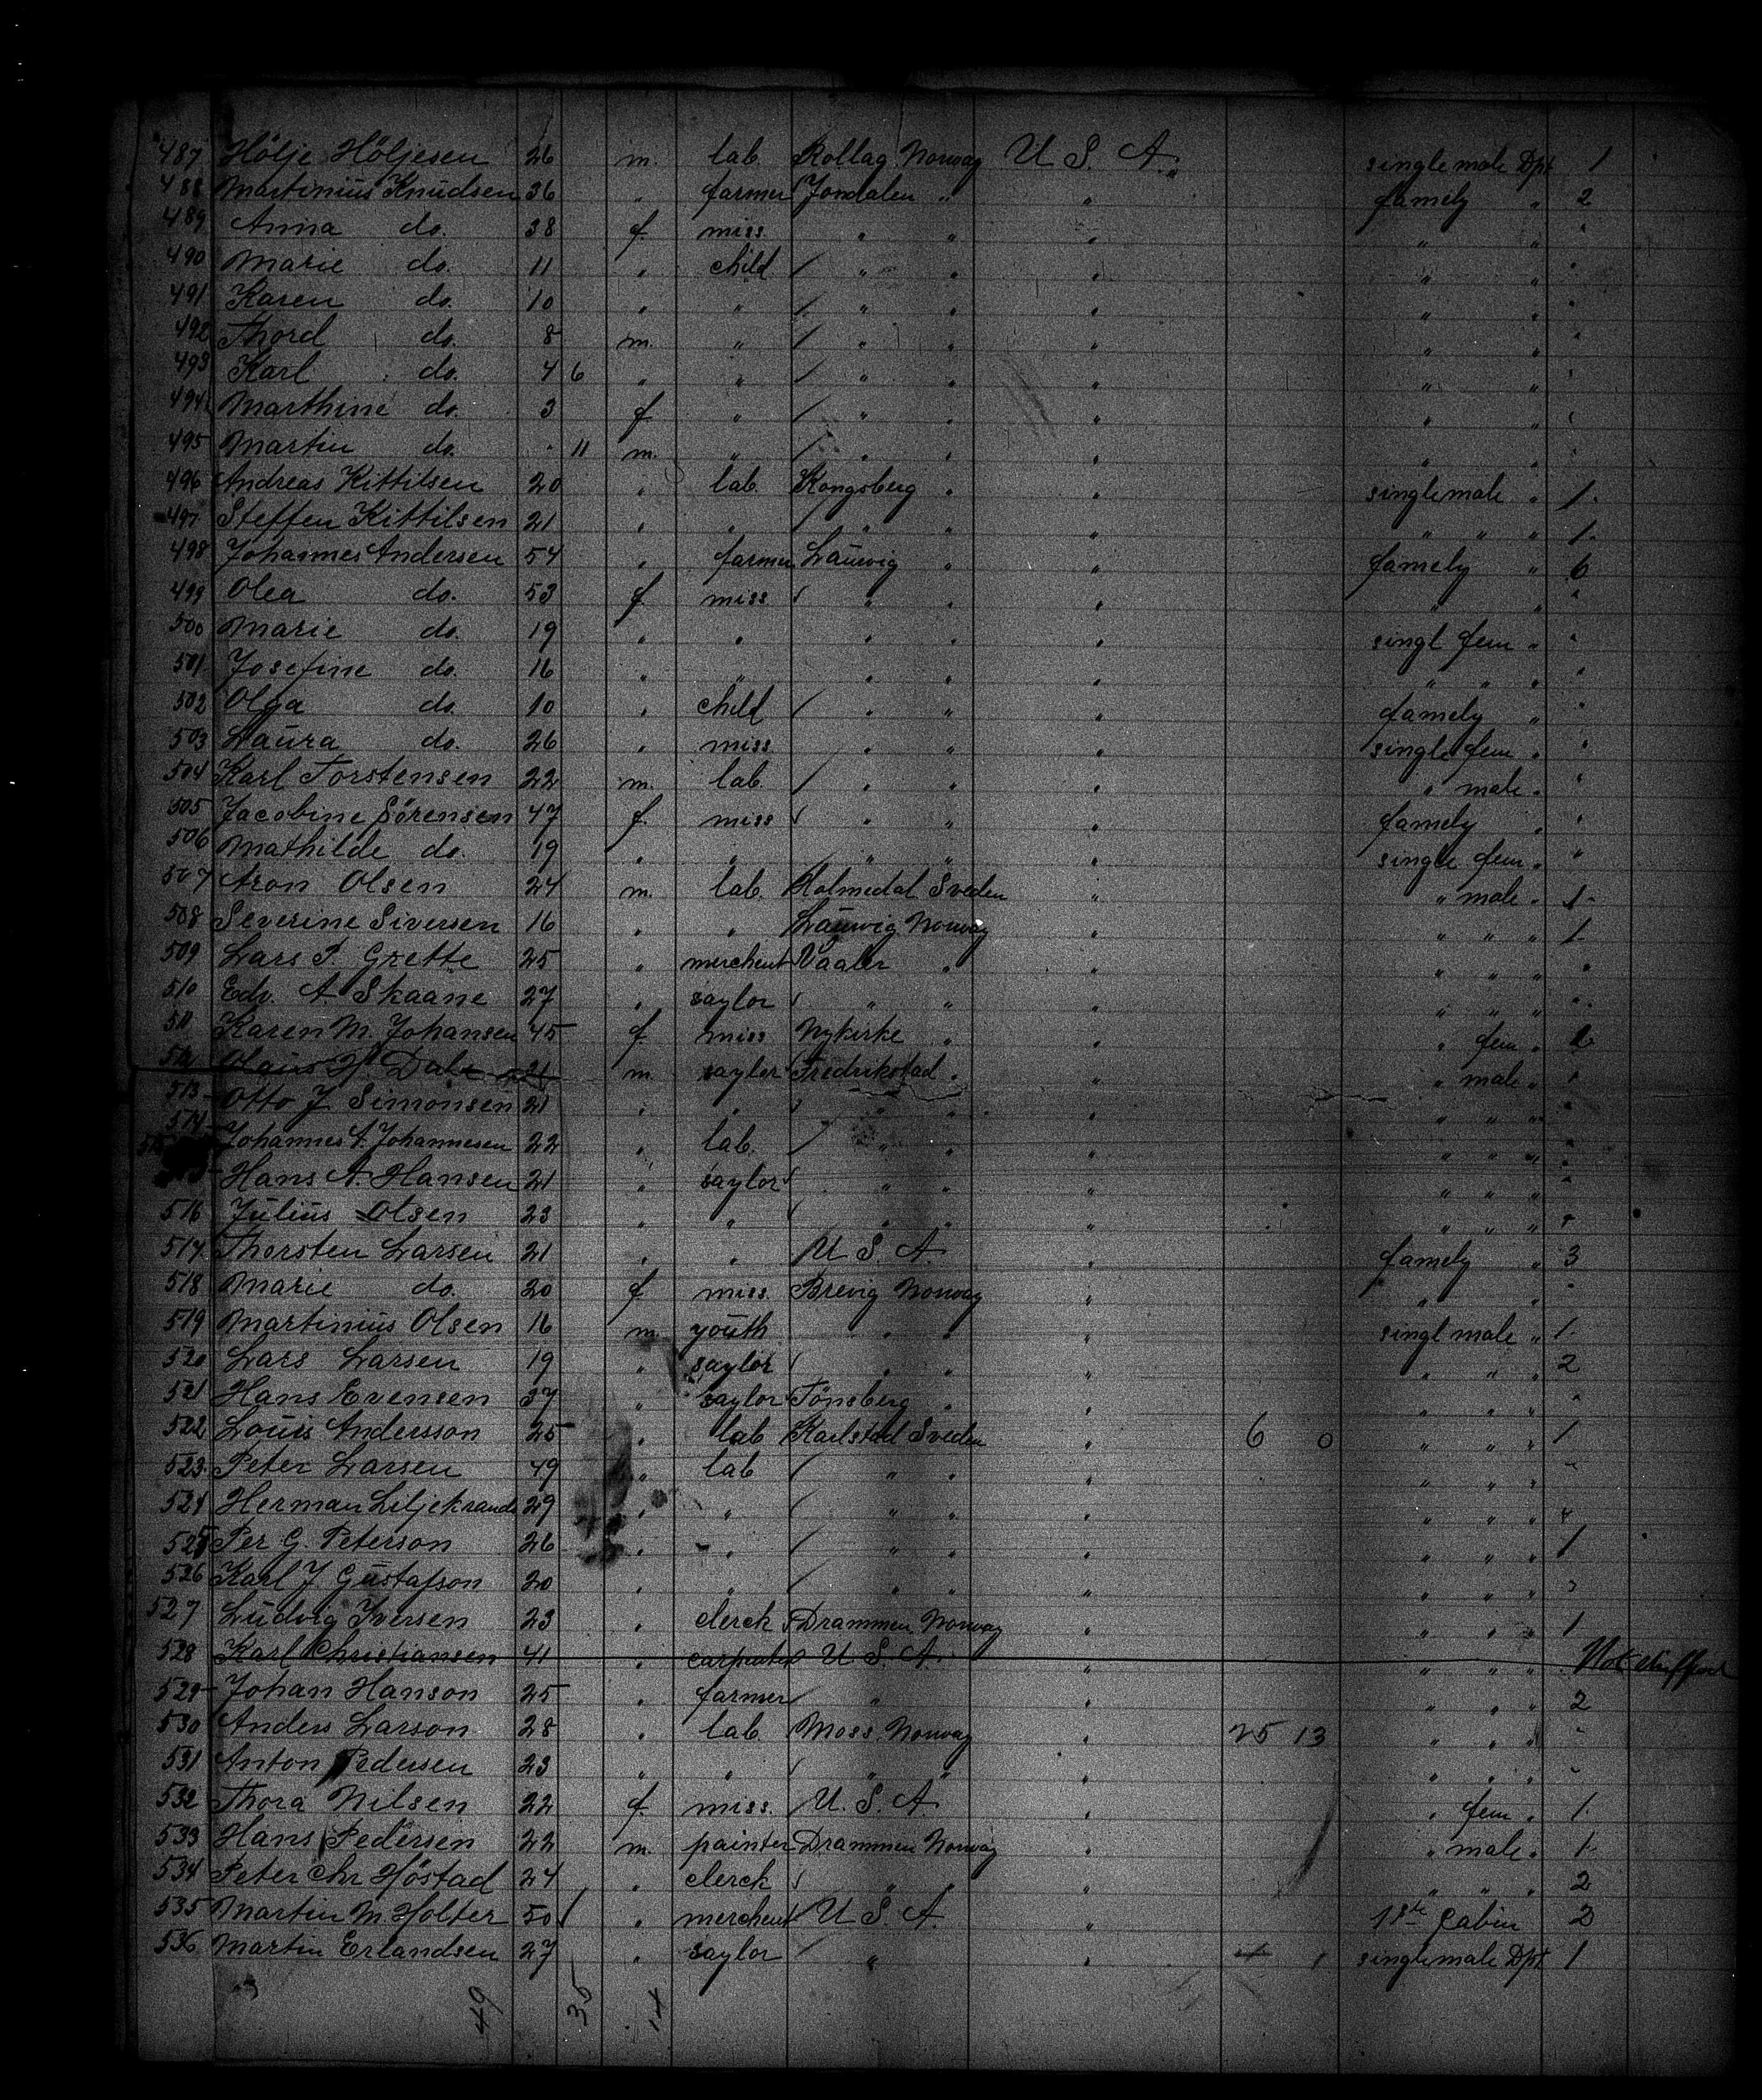 487 Hölje Höljesen 26 m. lab. Rollag Norway U S. A. single male Dpt 1
488 Martinius Knudsen 36 " farmer Jondalen " " famely " 2
489 Anna do. 38 f. miss " " " " " "
490 Marie do. 11 " child " " " " " "
491 Karen do. 10 " " " " " " " "
492 Thord do. 8 m. " " " " " " "
493 Karl do. 4 6 " " " " " " " "
494 Marthine do. 3 f " " " " " " "
495 Martin do. - 11 m. " " " " " " "
496 Andreas Kittilsen 20 " lab. Kongsberg " " single male " 1.
497 Steffen Kittilsen 21 " " " " " " " " 1.
498 Johannes Andersen 54 " farmer Lauwig " " famely " 6
499 Olea do. 53 f miss " " " " " "
500 Marie do. 19 " " " " " singl fem " "
501 Josefine do. 16 " " " " " " " " "
502 Olga do. 10 " child " " " famely " "
503 Laura do. 26 " miss " " " single fem " "
504 Karl Torstensen 22 m. lab. " " " " male " "
505 Jacobine Sörensen 47 f. miss " " " famely " "
506 Mathilde do. 19 " " " " " single fem " "
507 Aron Olsen 24 m. lab. Holmedal Sveden " " male " 1.
508 Severine Siversen 16 " " Lauwig Norway " " " " 1.
509 Lars P. Grette 25 " merchent Vaaler " " " " " "
510 Edv. A. Skaane 27 " saylor " " " " " " "
511 Karen M. Johansen 45 f. miss Nykirke " " " fem "
512 Dale 21 m. sayler Fredrikstad " " " male " "
513 Otto J Simonsen 21 " " " " " " " " "
514 Johannes A. Johannesen 22 " lab. " " " " " " "
Hans A. Hansen 21 " saylor " " " " " " "
516 Julius Olsen 23 " " " " " " " " "
517 Thorsten Larsen 21 " " U S. A. " famely " 3
518 Marie do. 20 f miss. Brevig Norway " " " "
519 Martinius Olsen 16 m. youth " " " singl male " 1.
520 Lars Larsen 19 " saylor " " " " " " 2
521 Hans Evensen 37 " saylor Tönsberg " " " " " "
522 Louis Andersson 25 " lab Karlstad Sveden " 6 0 " " " 1
523 Peter Larsen 49 " lab " " " " " " "
524 Herman Liljekrands 29 " " " " " " " " "
525 Per G. Peterson 26 " " " " " " " " 1
526 Karl J Gustafson 20 " " " " " " " " "
527 Ludvig Iversen 23 " clerck Drammen Norway " " " " 1
528 Karl Christiansen 41 " carpenter U S. A. " " " " Not shipped
529 Johan Hanson 25 " farmer " " " " " 2
530 Anders Larson 28 " lab Moss Norway " 25 13 " " " "
531 Anton Pedersen 23 " " " " " " " " "
532 Thora Nilsen 22 f. miss. U. S. A. " " fem " 1.
533 Hans Pedersen 22 m. painter Drammen Norway " " male " 1.
534 Peter Chr Höstad 24 " clerck " " " " " " 2
535 Martin M. Holter 50 " merchent U S A. " 1ste Cabin 2
536 Martin Erlandsen 27 " saylor " " single male Dpt 1
49 35 14